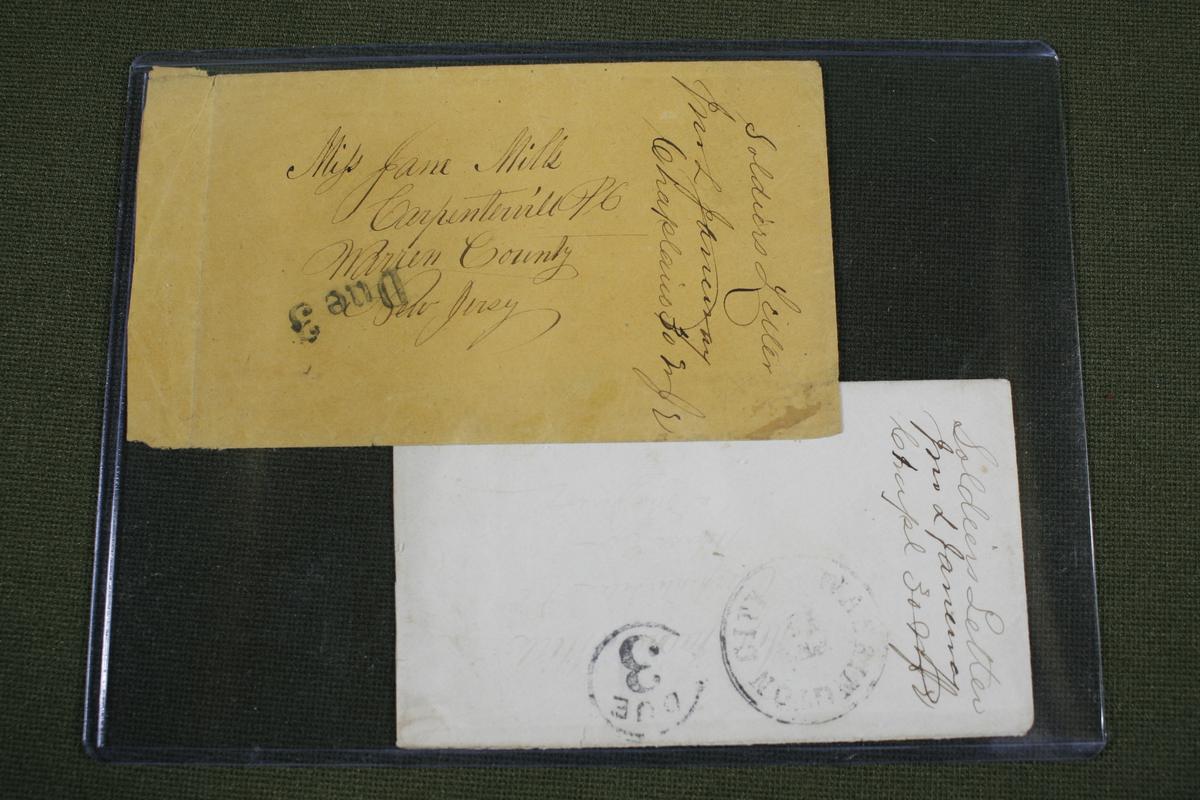 Miss Jane Mill
Carpentervill P.O
Warren County
New Jersy
Due 3
Soldiers Letter
Jno L Janeway
Chaplain 30 Inf
Soldiers Letter
Jno L Janeway
Chapl 30
WASHINGTON CITY
DUE
3